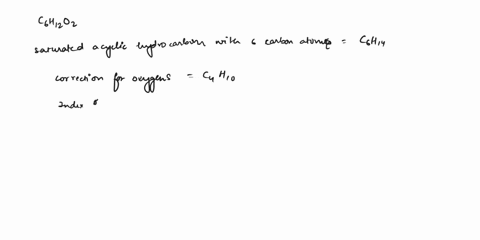 C6H12O2
saturated acyclic hydrocarbon with 6 carbon atoms = C6H14
correction for oxygens = C4H10
index